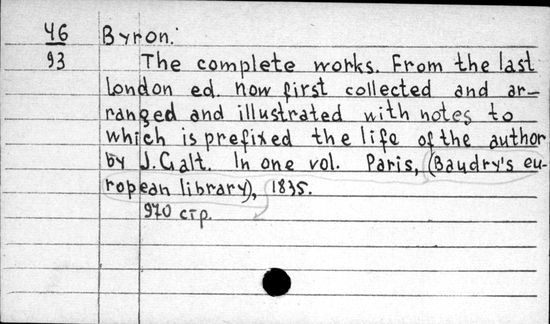 46 Byron.
93 The complete works. From the last
London ed. now first collected and ar-
ranged and illustrated with notes to
which is prefixed the life of the author
by J. Galt. In one vol. Paris, (Baudry's eu-
ropean library), 1835.
970 стр.